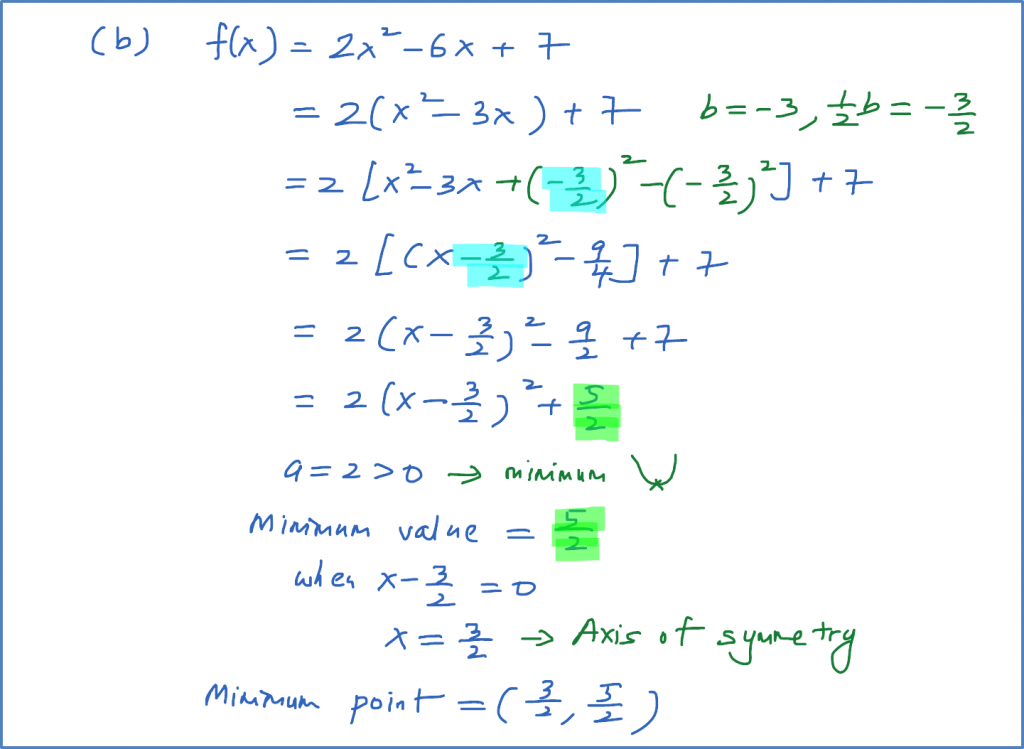 (b) f(x) = 2x² - 6x + 7
= 2(x² - 3x) + 7 b = -3, 1/2 b = -3/2
= 2 [x² - 3x + (-3/2)² - (-3/2)²] + 7
= 2 [(x - 3/2)² - 9/4] + 7
= 2 (x - 3/2)² - 9/2 + 7
= 2 (x - 3/2)² + 5/2
a = 2 > 0 → minimum
Minimum value = 5/2
when x - 3/2 = 0
x = 3/2 → Axis of symmetry
Minimum point = (3/2, 5/2)